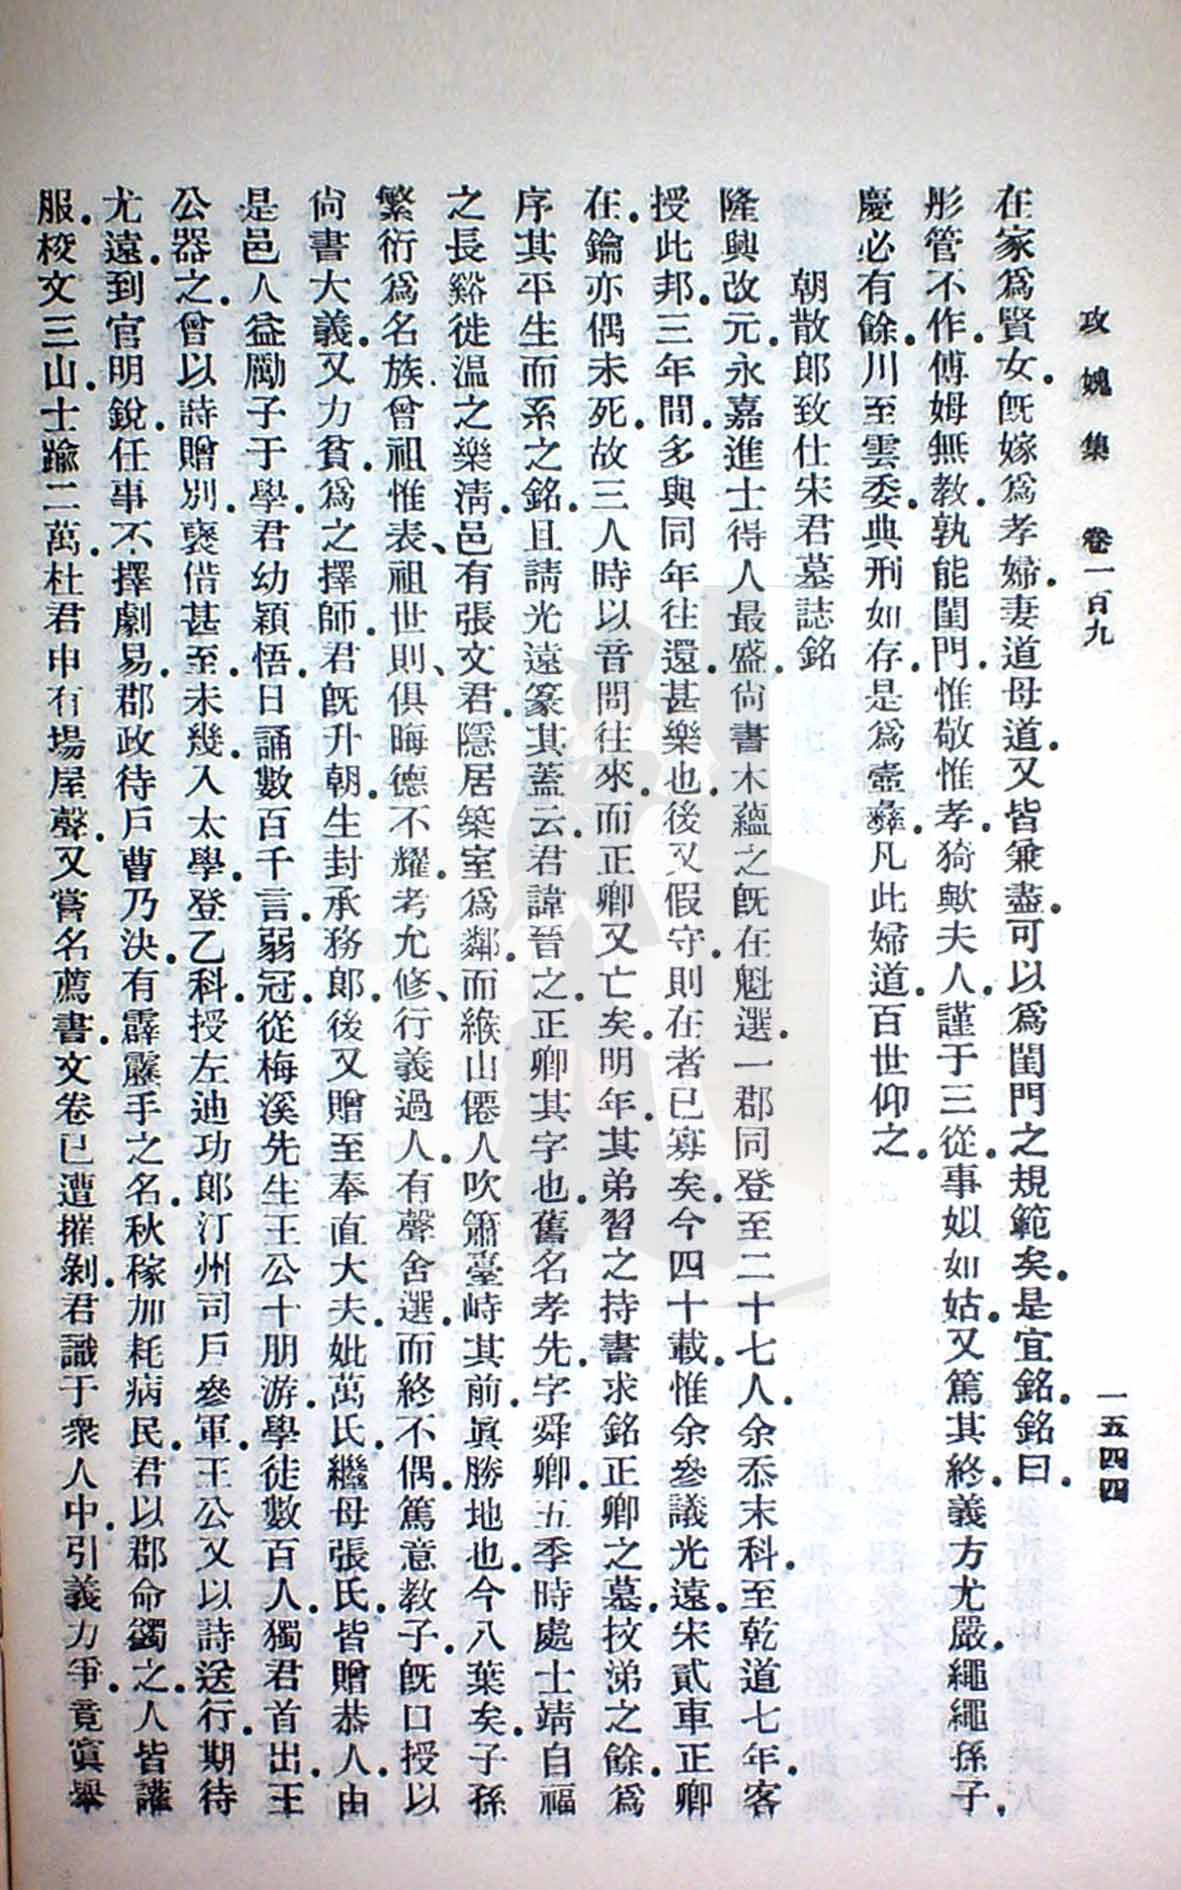 攻媿集　卷一百九　一五四四
在家爲賢女．旣嫁爲孝婦．妻道母道．又皆兼盡．可以爲閨門之規範矣．是宜銘．銘曰．
彤管不作．傅姆無敎．孰能閨門．惟敬惟孝．猗歟夫人．謹于三從．事姒如姑．又篤其終．義方尤嚴．繩繩孫子．
慶必有餘．川至雲委．典刑如存．是爲壼彝．凡此婦道．百世仰之．
朝散郎致仕宋君墓誌銘
隆興改元．永嘉進士得人最盛．尙書木蘊之旣在魁選．一郡同登至二十七人．余忝末科．至乾道七年．客
授此邦．三年間．多與同年往還．甚樂也．後又假守．則在者已寡矣．今四十載．惟余參議光遠．宋貳車正卿
在．鑰亦偶未死．故三人時以音問往來．而正卿又亡矣．明年．其弟習之持書求銘正卿之墓．抆涕之餘．爲
序其平生而系之銘．且請光遠篆其蓋云．君諱晉之．正卿其字也．舊名孝先．字舜卿．五季時處士靖自福
之長谿徙温之樂淸．邑有張文君．隱居築室爲鄰．而緱山僊人吹簫臺峙其前．眞勝地也．今八葉矣．子孫
繁衍爲名族．曾祖惟表、祖世則、俱晦德不耀．考允修、行義過人．有聲舍選．而終不偶．篤意教子．旣口授以
尙書大義．又力貧．爲之擇師．君旣升朝．生封承務郎．後又贈至奉直大夫．妣萬氏．繼母張氏．皆贈恭人．由
是邑人益勵子于學．君幼穎悟．日誦數百千言．弱冠．從梅溪先生王公十朋游．學徒數百人．獨君首出．王
公器之．曾以詩贈別．襃借甚至．未幾．入太學．登乙科．授左迪功郎汀州司戶參軍．王公又以詩送行．期待
尤遠．到官明銳．任事不擇劇易．郡政待戶曹乃決．有霹靂手之名．秋稼加耗病民．君以郡命蠲之．人皆讙
服．校文三山．士踰二萬．杜君申有場屋聲．又嘗名薦書．文卷已遭摧剝．君識于衆人中．引義力爭．竟寘舉